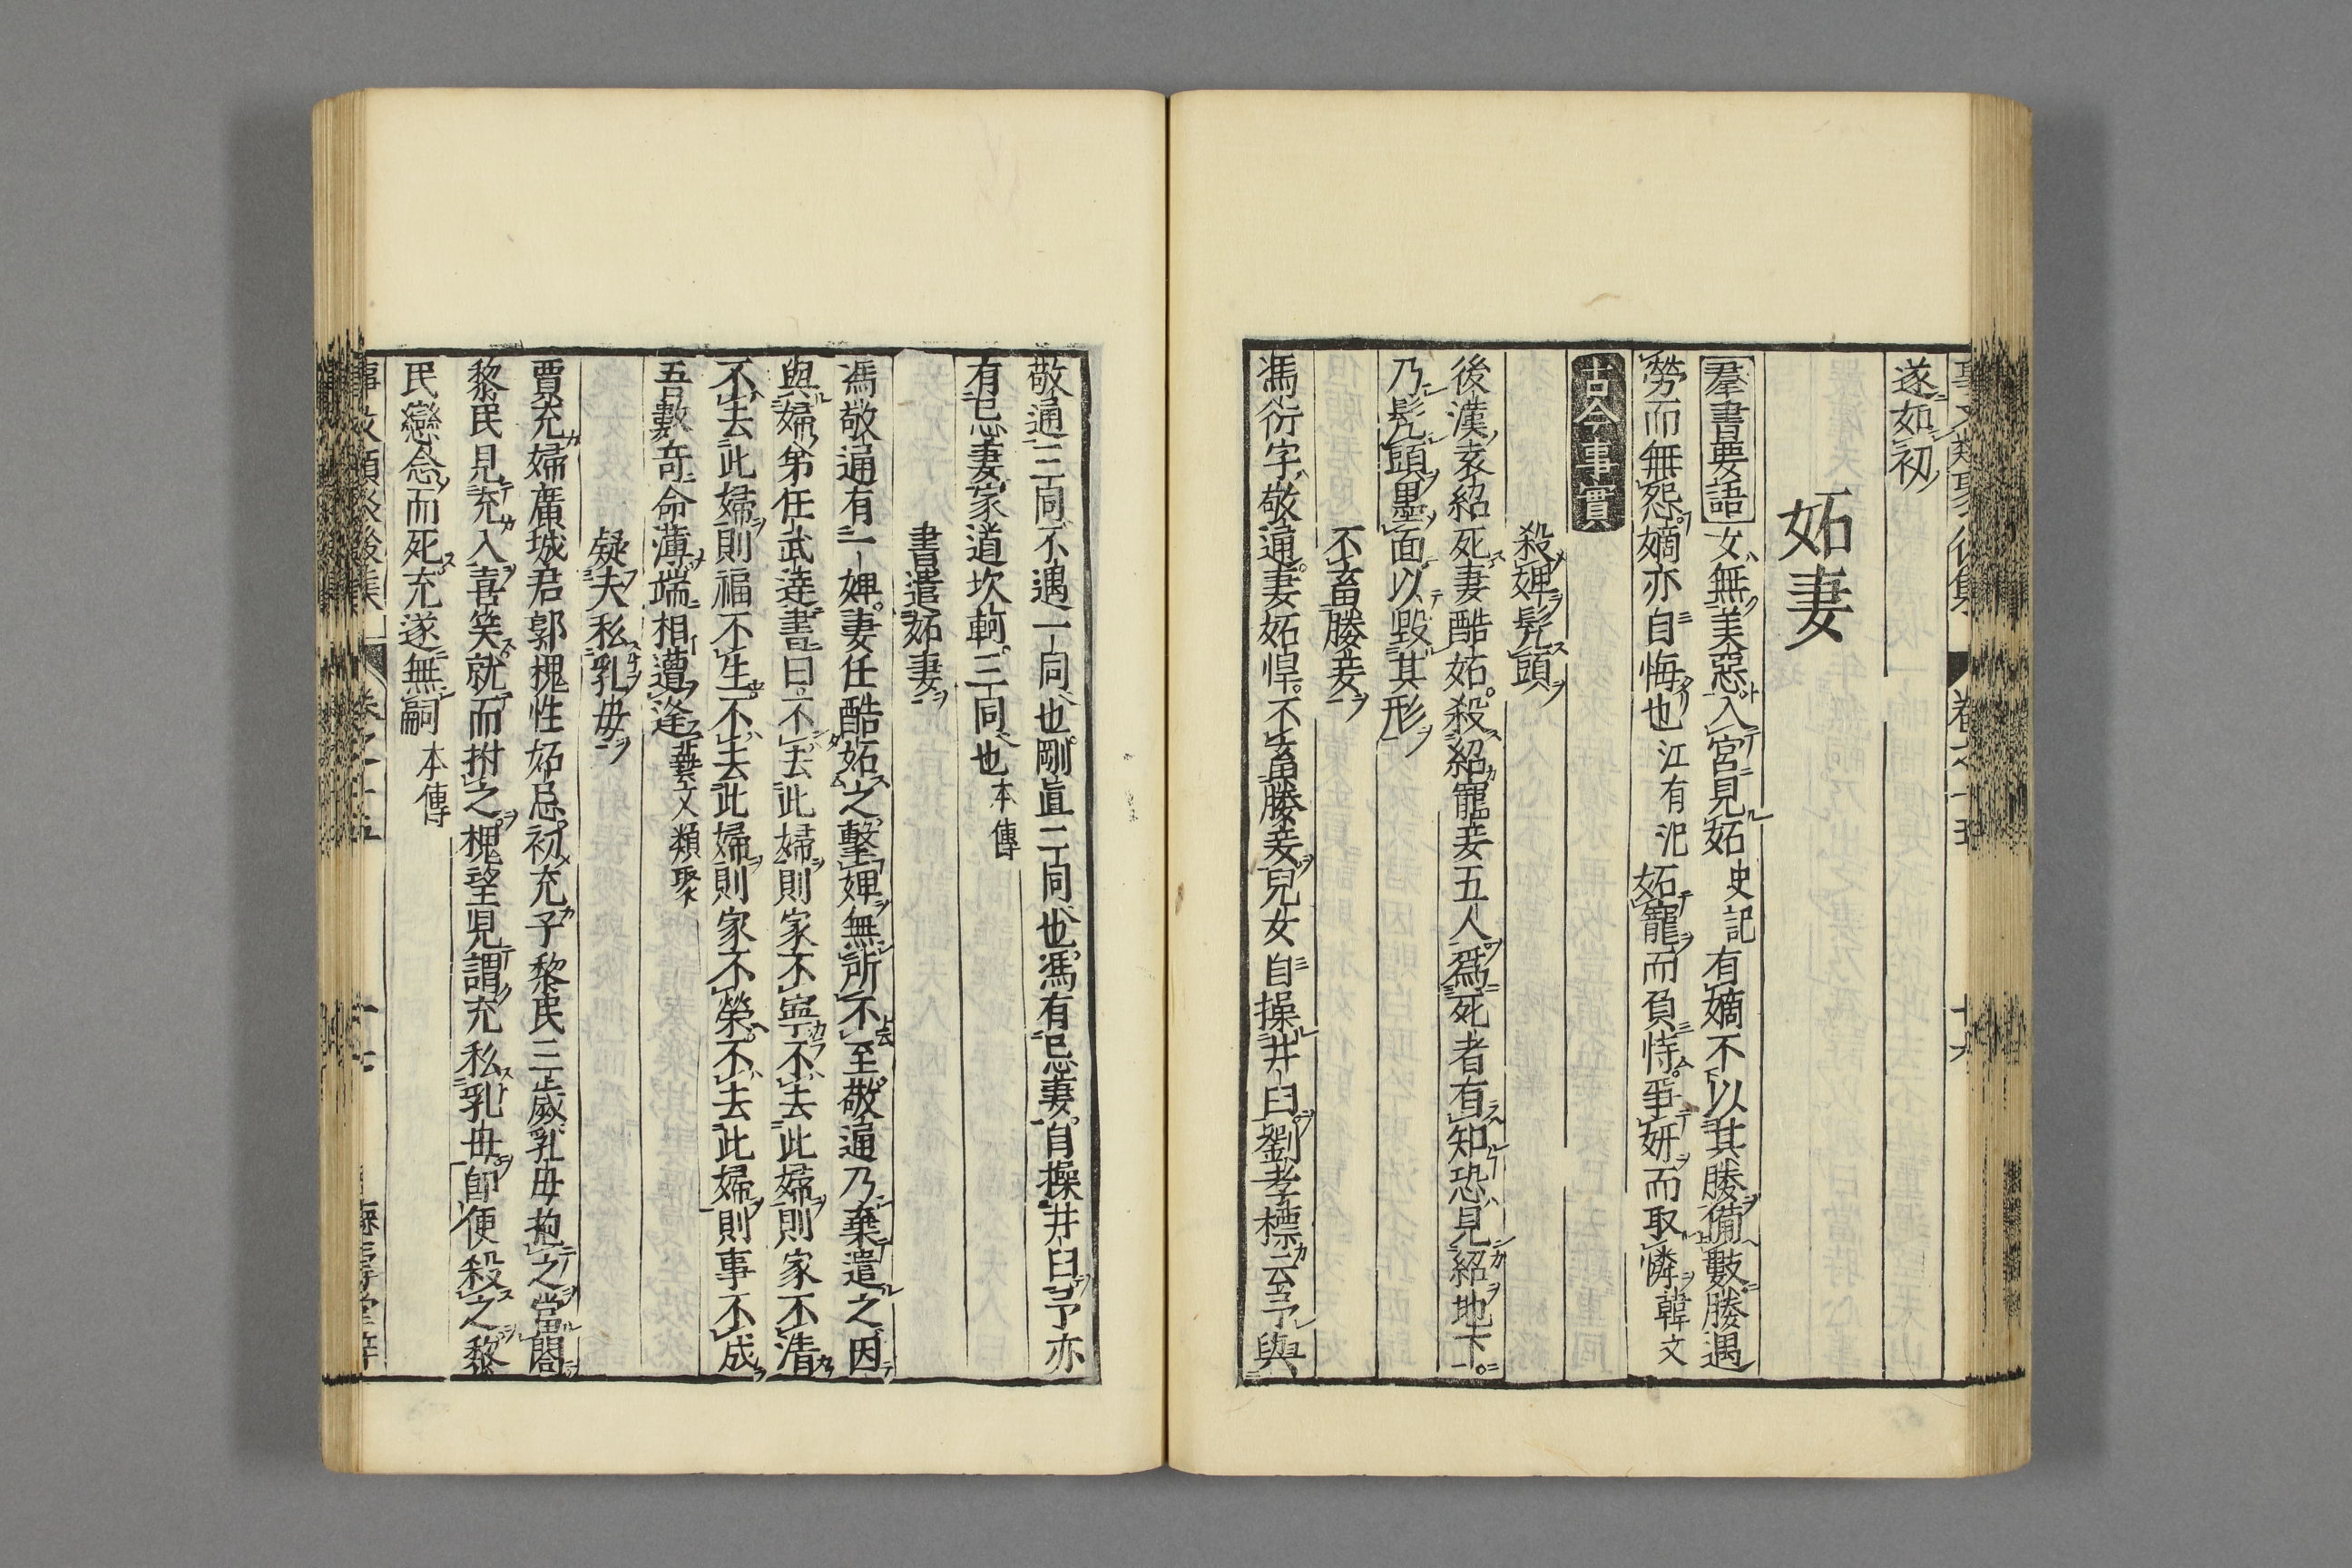 遂如初
妬妻
羣書要語 女無美惡入宮見妬 史記 有嫡不以其媵備數媵遇
勞而無怨嫡亦自悔也 江有汜 妬寵而負恃爭妍而取憐 韓文
古今事實
殺婢髠頭
後漢袁紹死妻酷妬殺紹寵妾五人爲死者有知恐見紹地下
乃髠頭墨面以毀其形
不畜媵妾
馮衍字敬通妻妬悍不畜媵妾兒女自操井臼劉孝標云予與
敬通三同不遇一同也剛直二同也馮有忌妻自操井臼予亦
有忌妻家道坎軻三同也 本傳
書遣妬妻
馮敬通有一婢妻任酷妬之擊婢無所不至敬通乃棄遣之因
與婦弟任武達書曰不去此婦則家不寧不去此婦則家不清
不去此婦則福不生不去此婦則家不榮不去此婦則事不成
吾數奇命薄端相遭逢 藝文類聚
疑夫私乳母
賈充婦廣城君郭槐性妬忌初充子黎民三歲乳母抱之當閤
黎民見充入喜笑就而拊之槐望見謂充私乳母卽便殺之黎
民戀念而死充遂無嗣 本傳
事文類聚後集 卷之十五